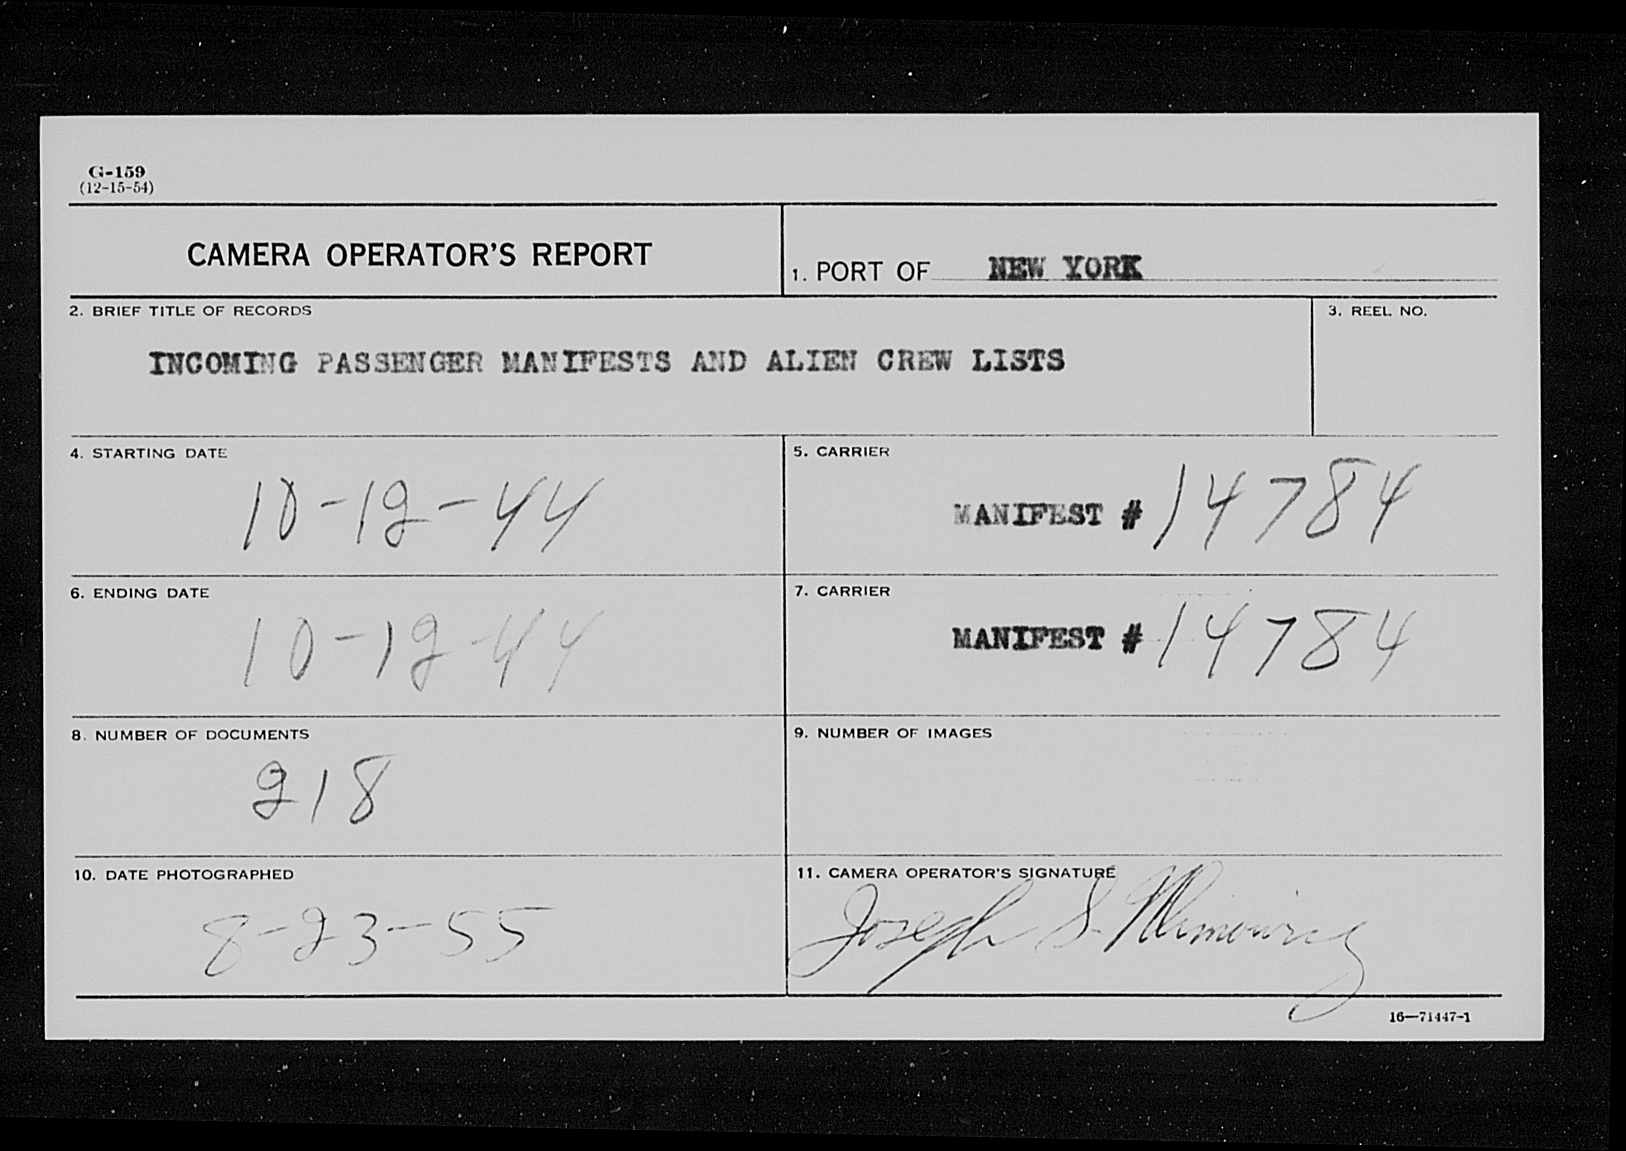 G-159
(12-15-54)
CAMERA OPERATOR'S REPORT
1. PORT OF NEW YORK
2. BRIEF TITLE OF RECORDS
3. REEL NO.
INCOMING PASSENGER MANIFESTS AND ALIEN CREW LISTS
4. STARTING DATE
10-12-44
5. CARRIER
MANIFEST # 14784
6. ENDING DATE
10-12-44
7. CARRIER
MANIFEST # 14784
8. NUMBER OF DOCUMENTS
218
9. NUMBER OF IMAGES
10. DATE PHOTOGRAPHED
8-23-55
11. CAMERA OPERATOR'S SIGNATURE
Joseph S.
16—71447-1